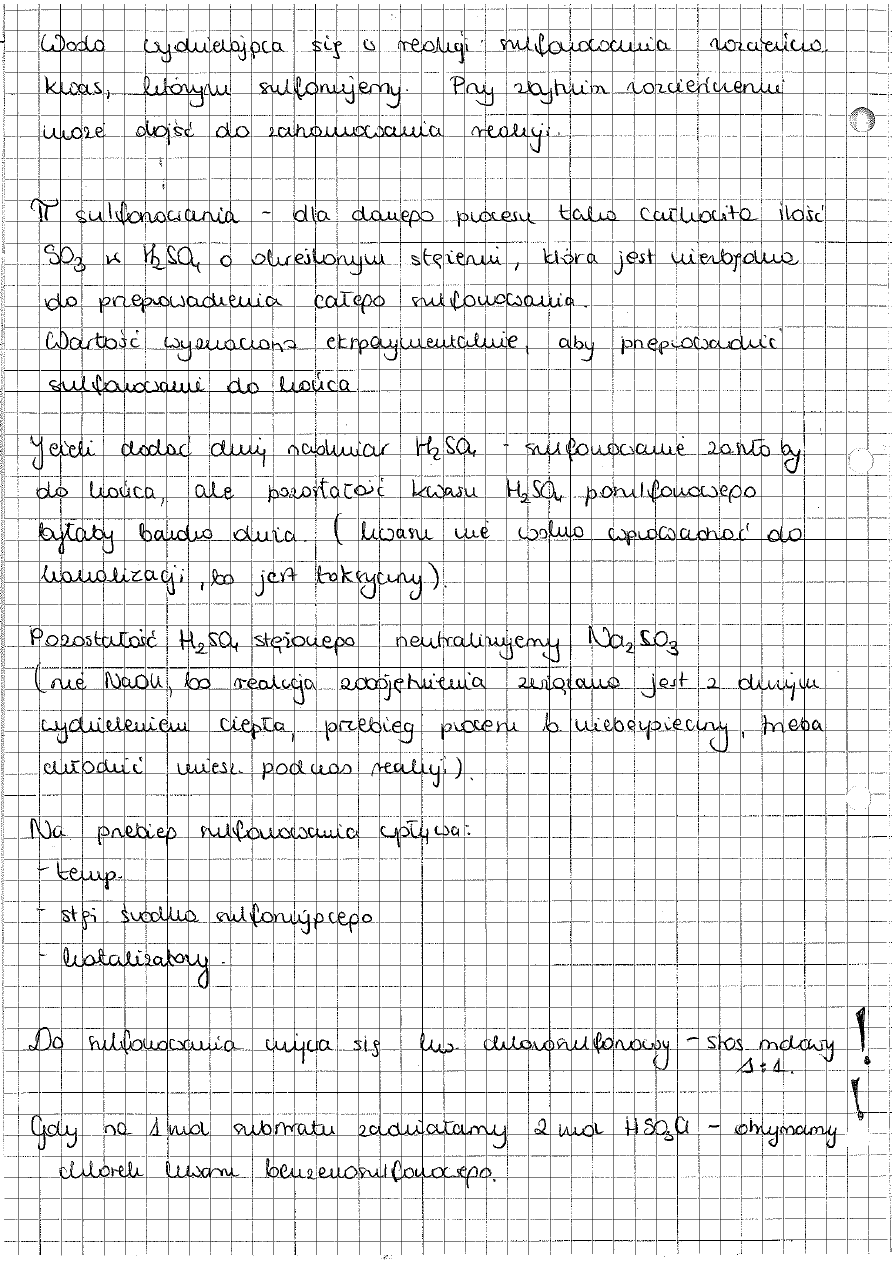 Woda wydzielająca się w reakcji sulfonowania rozcieńcza
kwas, którym sulfonujemy. Przy zbytnim rozcieńczeniu
może dojść do zahamowania reakcji.
π sulfonowania - dla danego procesu taka całkowita ilość
SO3 w H2SO4 o określonym stężeniu, która jest niezbędna
do przeprowadzenia całego sulfonowania.
Wartość wyznaczona eksperymentalnie, aby przeprowadzić
sulfonowanie do końca
Jeżeli dodać duży nadmiar H2SO4 - sulfonowanie zaszło by
do końca, ale pozostałość kwasu H2SO4 posulfonowego
byłaby bardzo duża. (kwasu nie wolno wprowadzać do
kanalizacji, bo jest toksyczny).
Pozostałość H2SO4 stężonego neutralizujemy Na2SO3
(nie NaOH, bo reakcja zobojętnienia związana jest z dużym
wydzieleniem ciepła, przebieg procesu b. niebezpieczny, trzeba
chłodzić miesz. podczas reakcji).
Na przebieg sulfonowania wpływa:
- temp.
- stęż środka sulfonującego
- katalizatory.
Do sulfonowania używa się kw. chlorosulfonowy - stos molowy !
1:1. !
Gdy na 1 mol substratu zadziałamy 2 mol HSO3Cl - otrzymamy
chlorek kwasu benzenosulfonowego.